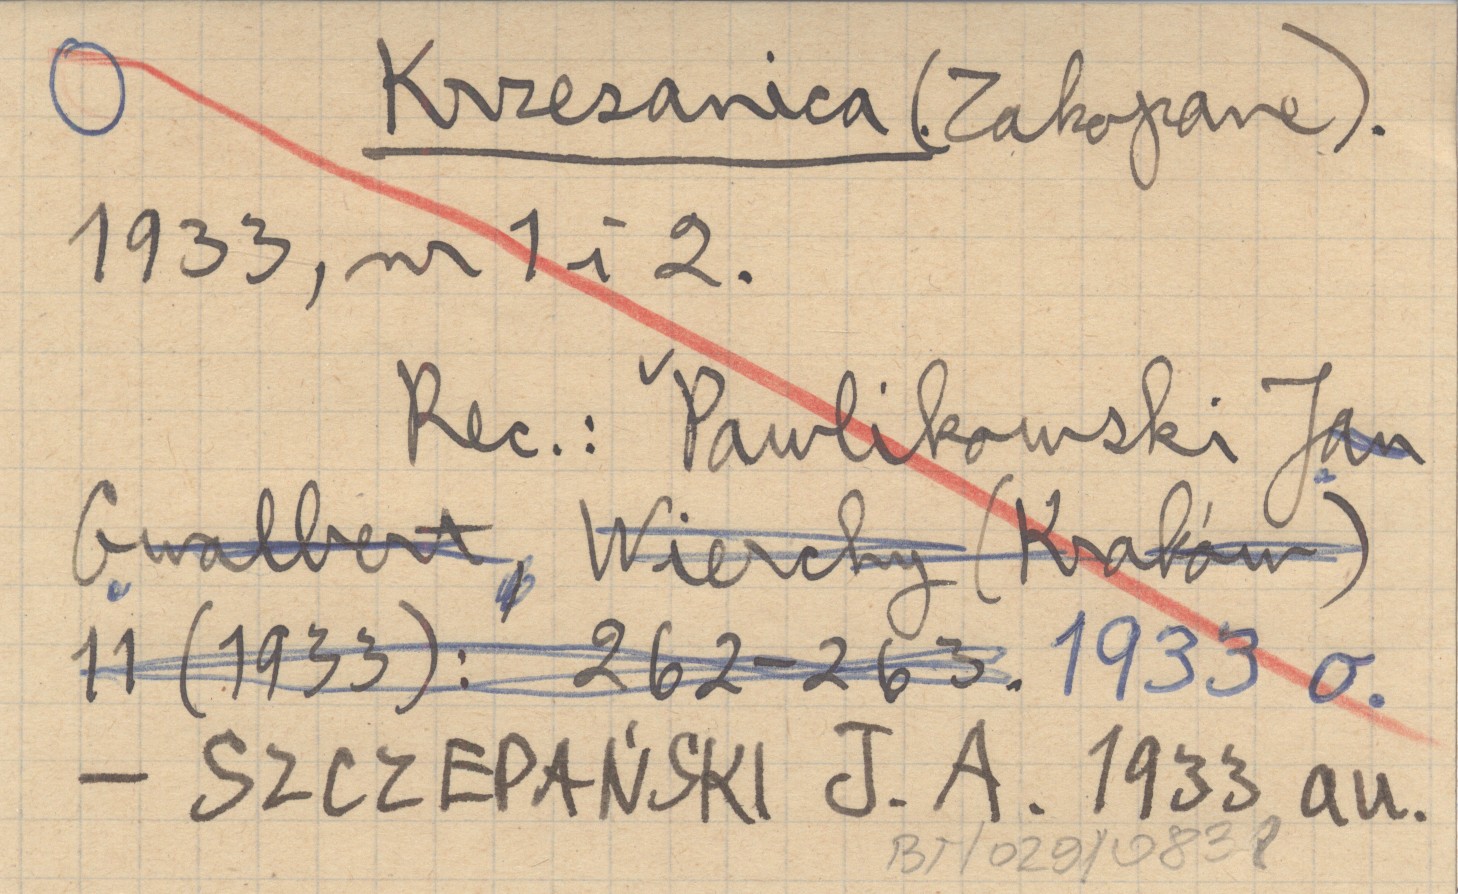 Krzesanica (Zakopane).
1933, nr 1 i 2.
Rec.: Pawlikowski Jan
Gwalbert, Wierchy (Kraków)
11 (1933): 262-263. 1933 o.
- SZCZEPAŃSKI J. A. 1933 au.
BT/029/0831